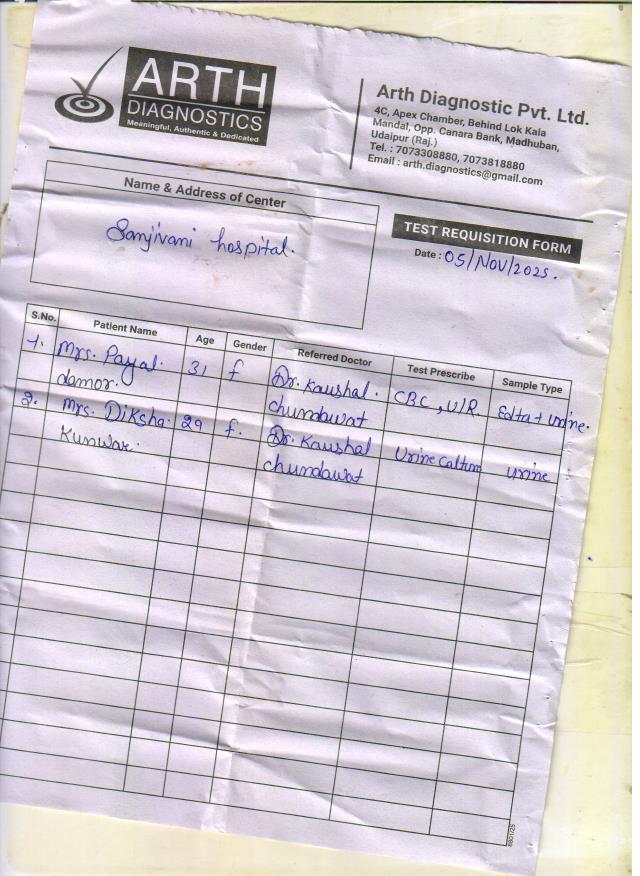 ARTH
DIAGNOSTICS
Meaningful, Authentic & Dedicated
Arth Diagnostic Pvt. Ltd.
4C, Apex Chamber, Behind Lok Kala
Mandal, Opp. Canara Bank, Madhuban,
Udaipur (Raj.)
Tel. : 7073308880, 7073818880
Email : arth.diagnostics@gmail.com
Name & Address of Center
Sanjivani hospital.
TEST REQUISITION FORM
Date : 05/Nov/2025.
S.No. Patient Name Age Gender Referred Doctor Test Prescribe Sample Type
1. Mrs. Payal. 31 f Dr. Kaushal. CBC, U/R. Edta + urine.
damor. chundawat
2. Mrs. Diksha. 29 f. Dr. Kaushal Urine Calture urine
Kunwar. chundawat